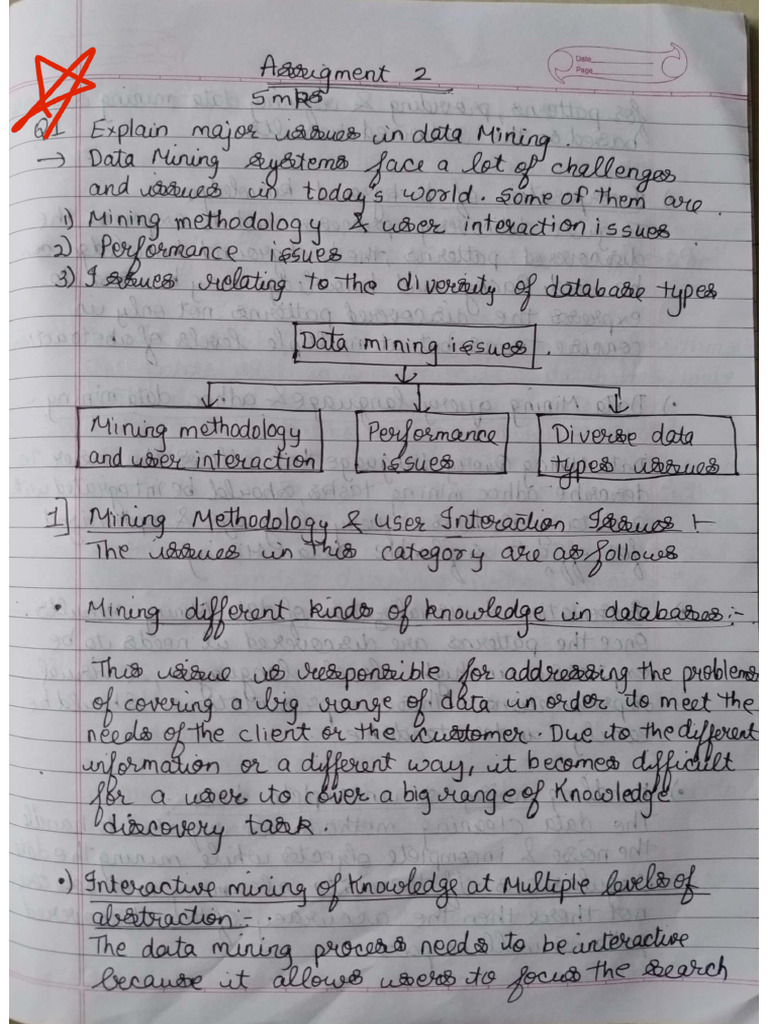 Date
Page
Assigment 2
5 mks
Q1 Explain major issues in data Mining.
→ Data Mining systems face a lot of challenges
and issues in today's world. Some of them are.
1) Mining methodology & user interaction issues
2) Performance issues
3) Issues relating to the diversity of database types
Data mining issues.
Mining methodology
and user interaction
Performance
issues
Diverse data
types issues
1] Mining Methodology & User Interaction Issues :-
The issues in this category are as follows
• Mining different kinds of knowledge in databases:-
This issue is responsible for addressing the problems
of covering a big range of data in order to meet the
needs of the client or the customer. Due to the different
information or a different way, it becomes difficult
for a user to cover a big range of knowledge
discovery task.
•) Interactive mining of knowledge at Multiple levels of
abstraction:-
The data mining process needs to be interactive
because it allows users to focus the search